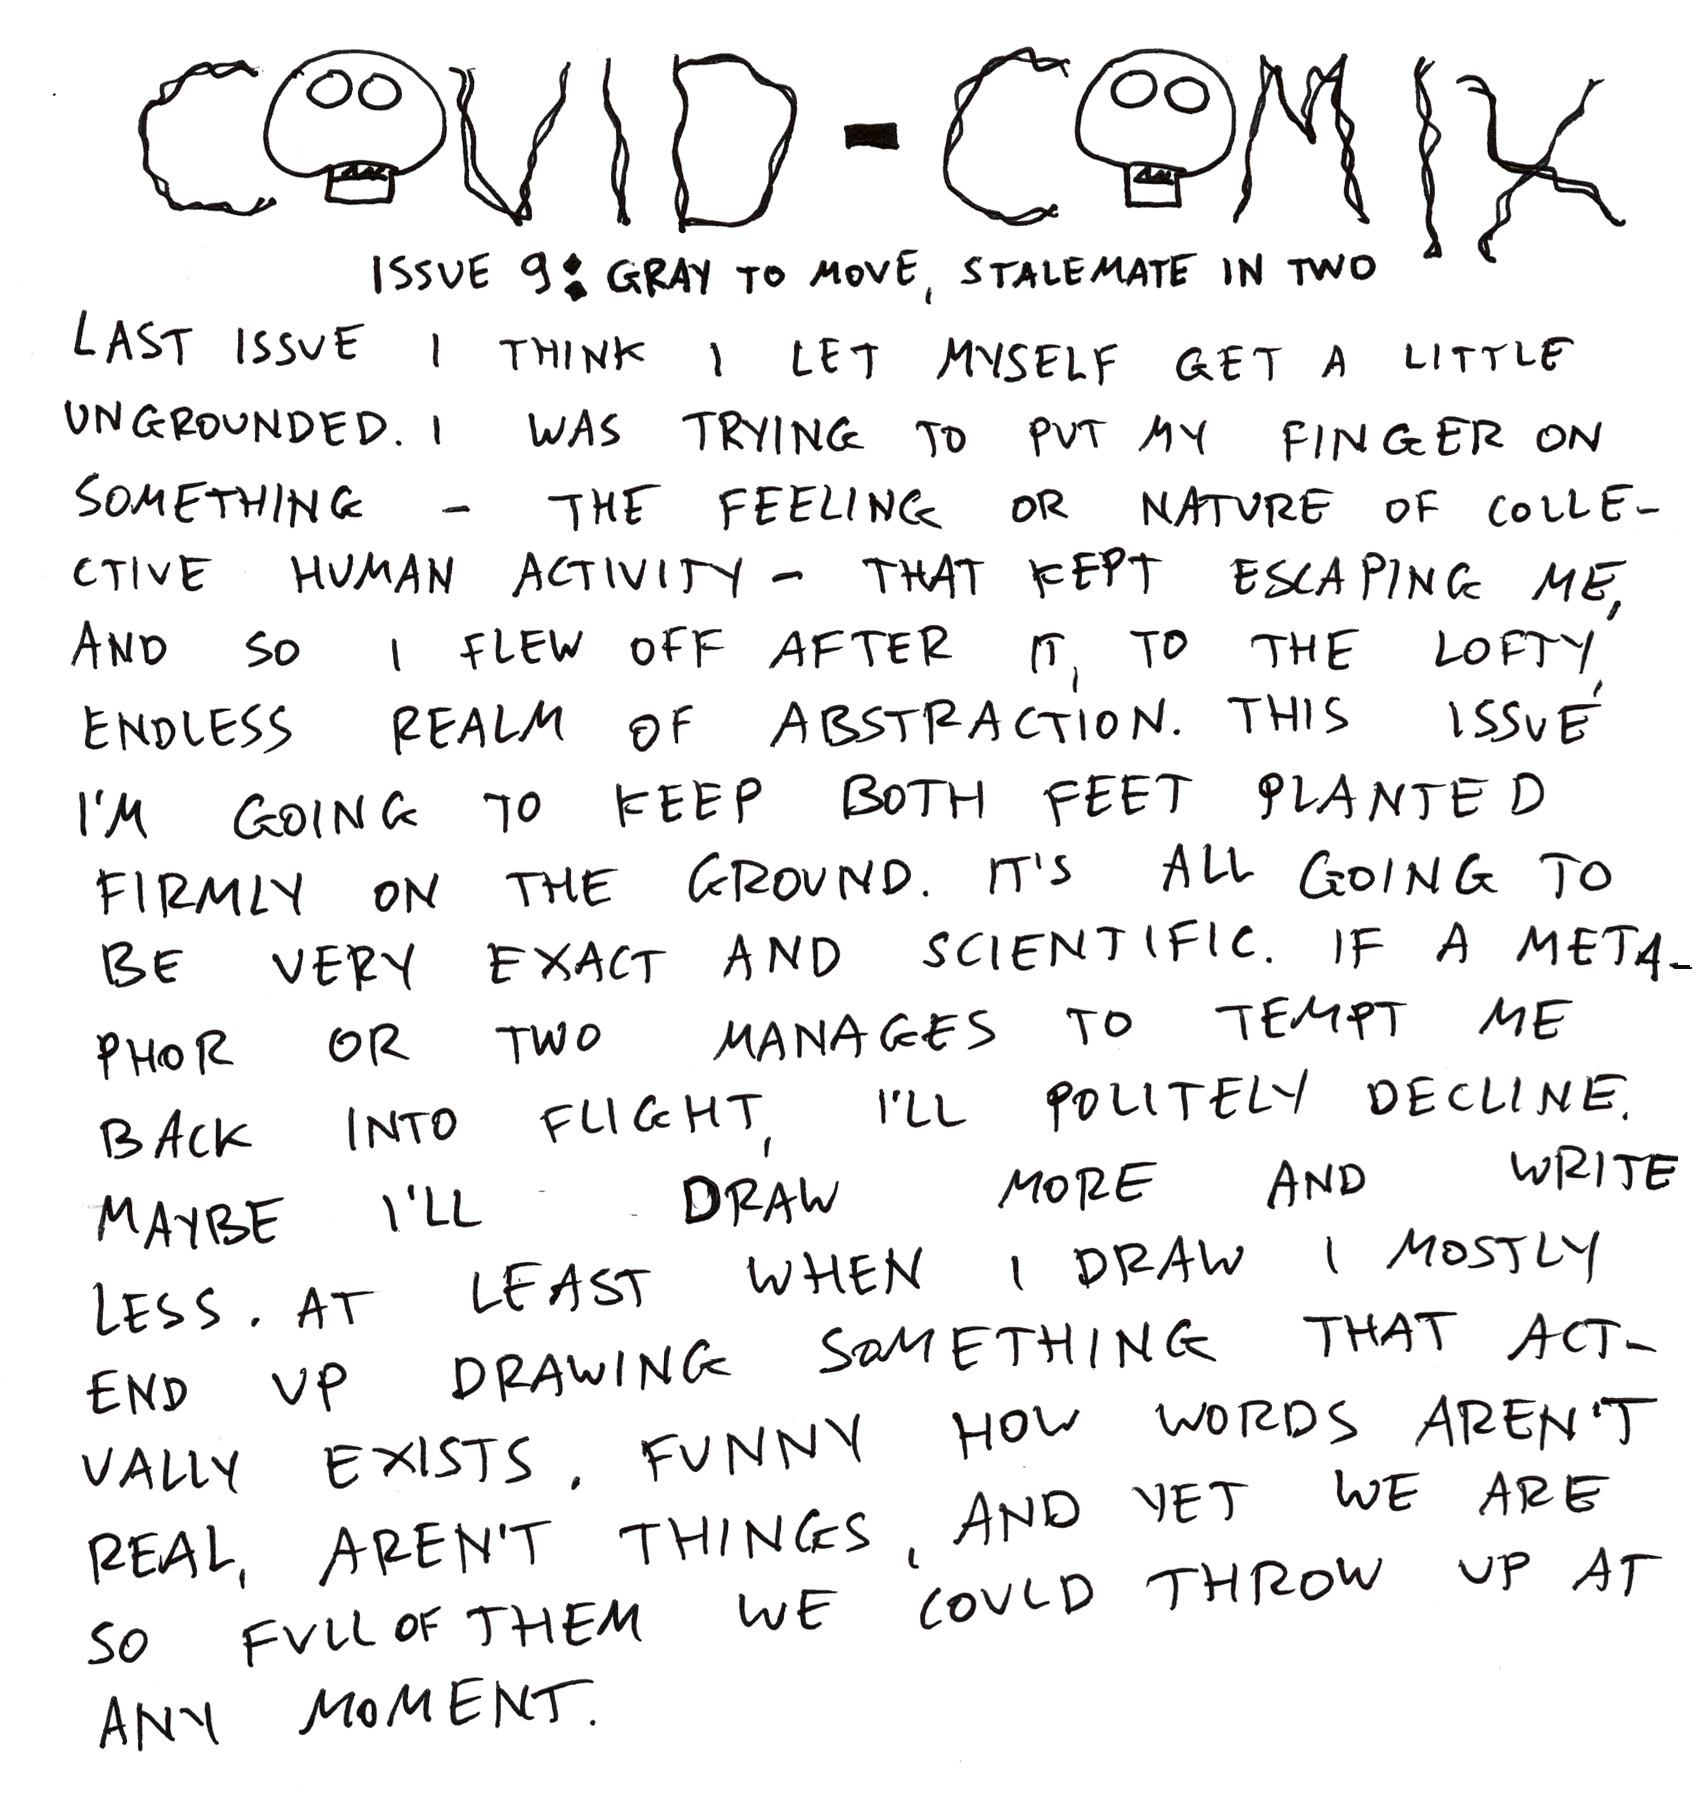 COVID-COMIX
ISSUE 9: GRAY TO MOVE, STALEMATE IN TWO
LAST ISSUE I THINK I LET MYSELF GET A LITTLE
UNGROUNDED. I WAS TRYING TO PUT MY FINGER ON
SOMETHING - THE FEELING OR NATURE OF COLLE-
CTIVE HUMAN ACTIVITY - THAT KEPT ESCAPING ME,
AND SO I FLEW OFF AFTER IT, TO THE LOFTY,
ENDLESS REALM OF ABSTRACTION. THIS ISSUE
I'M GOING TO KEEP BOTH FEET PLANTED
FIRMLY ON THE GROUND. IT'S ALL GOING TO
BE VERY EXACT AND SCIENTIFIC. IF A META-
PHOR OR TWO MANAGES TO TEMPT ME
BACK INTO FLIGHT, I'LL POLITELY DECLINE.
MAYBE I'LL DRAW MORE AND WRITE
LESS. AT LEAST WHEN I DRAW I MOSTLY
END UP DRAWING SOMETHING THAT ACT-
UALLY EXISTS. FUNNY HOW WORDS AREN'T
REAL, AREN'T THINGS, AND YET WE ARE
SO FULL OF THEM WE COULD THROW UP AT
ANY MOMENT.